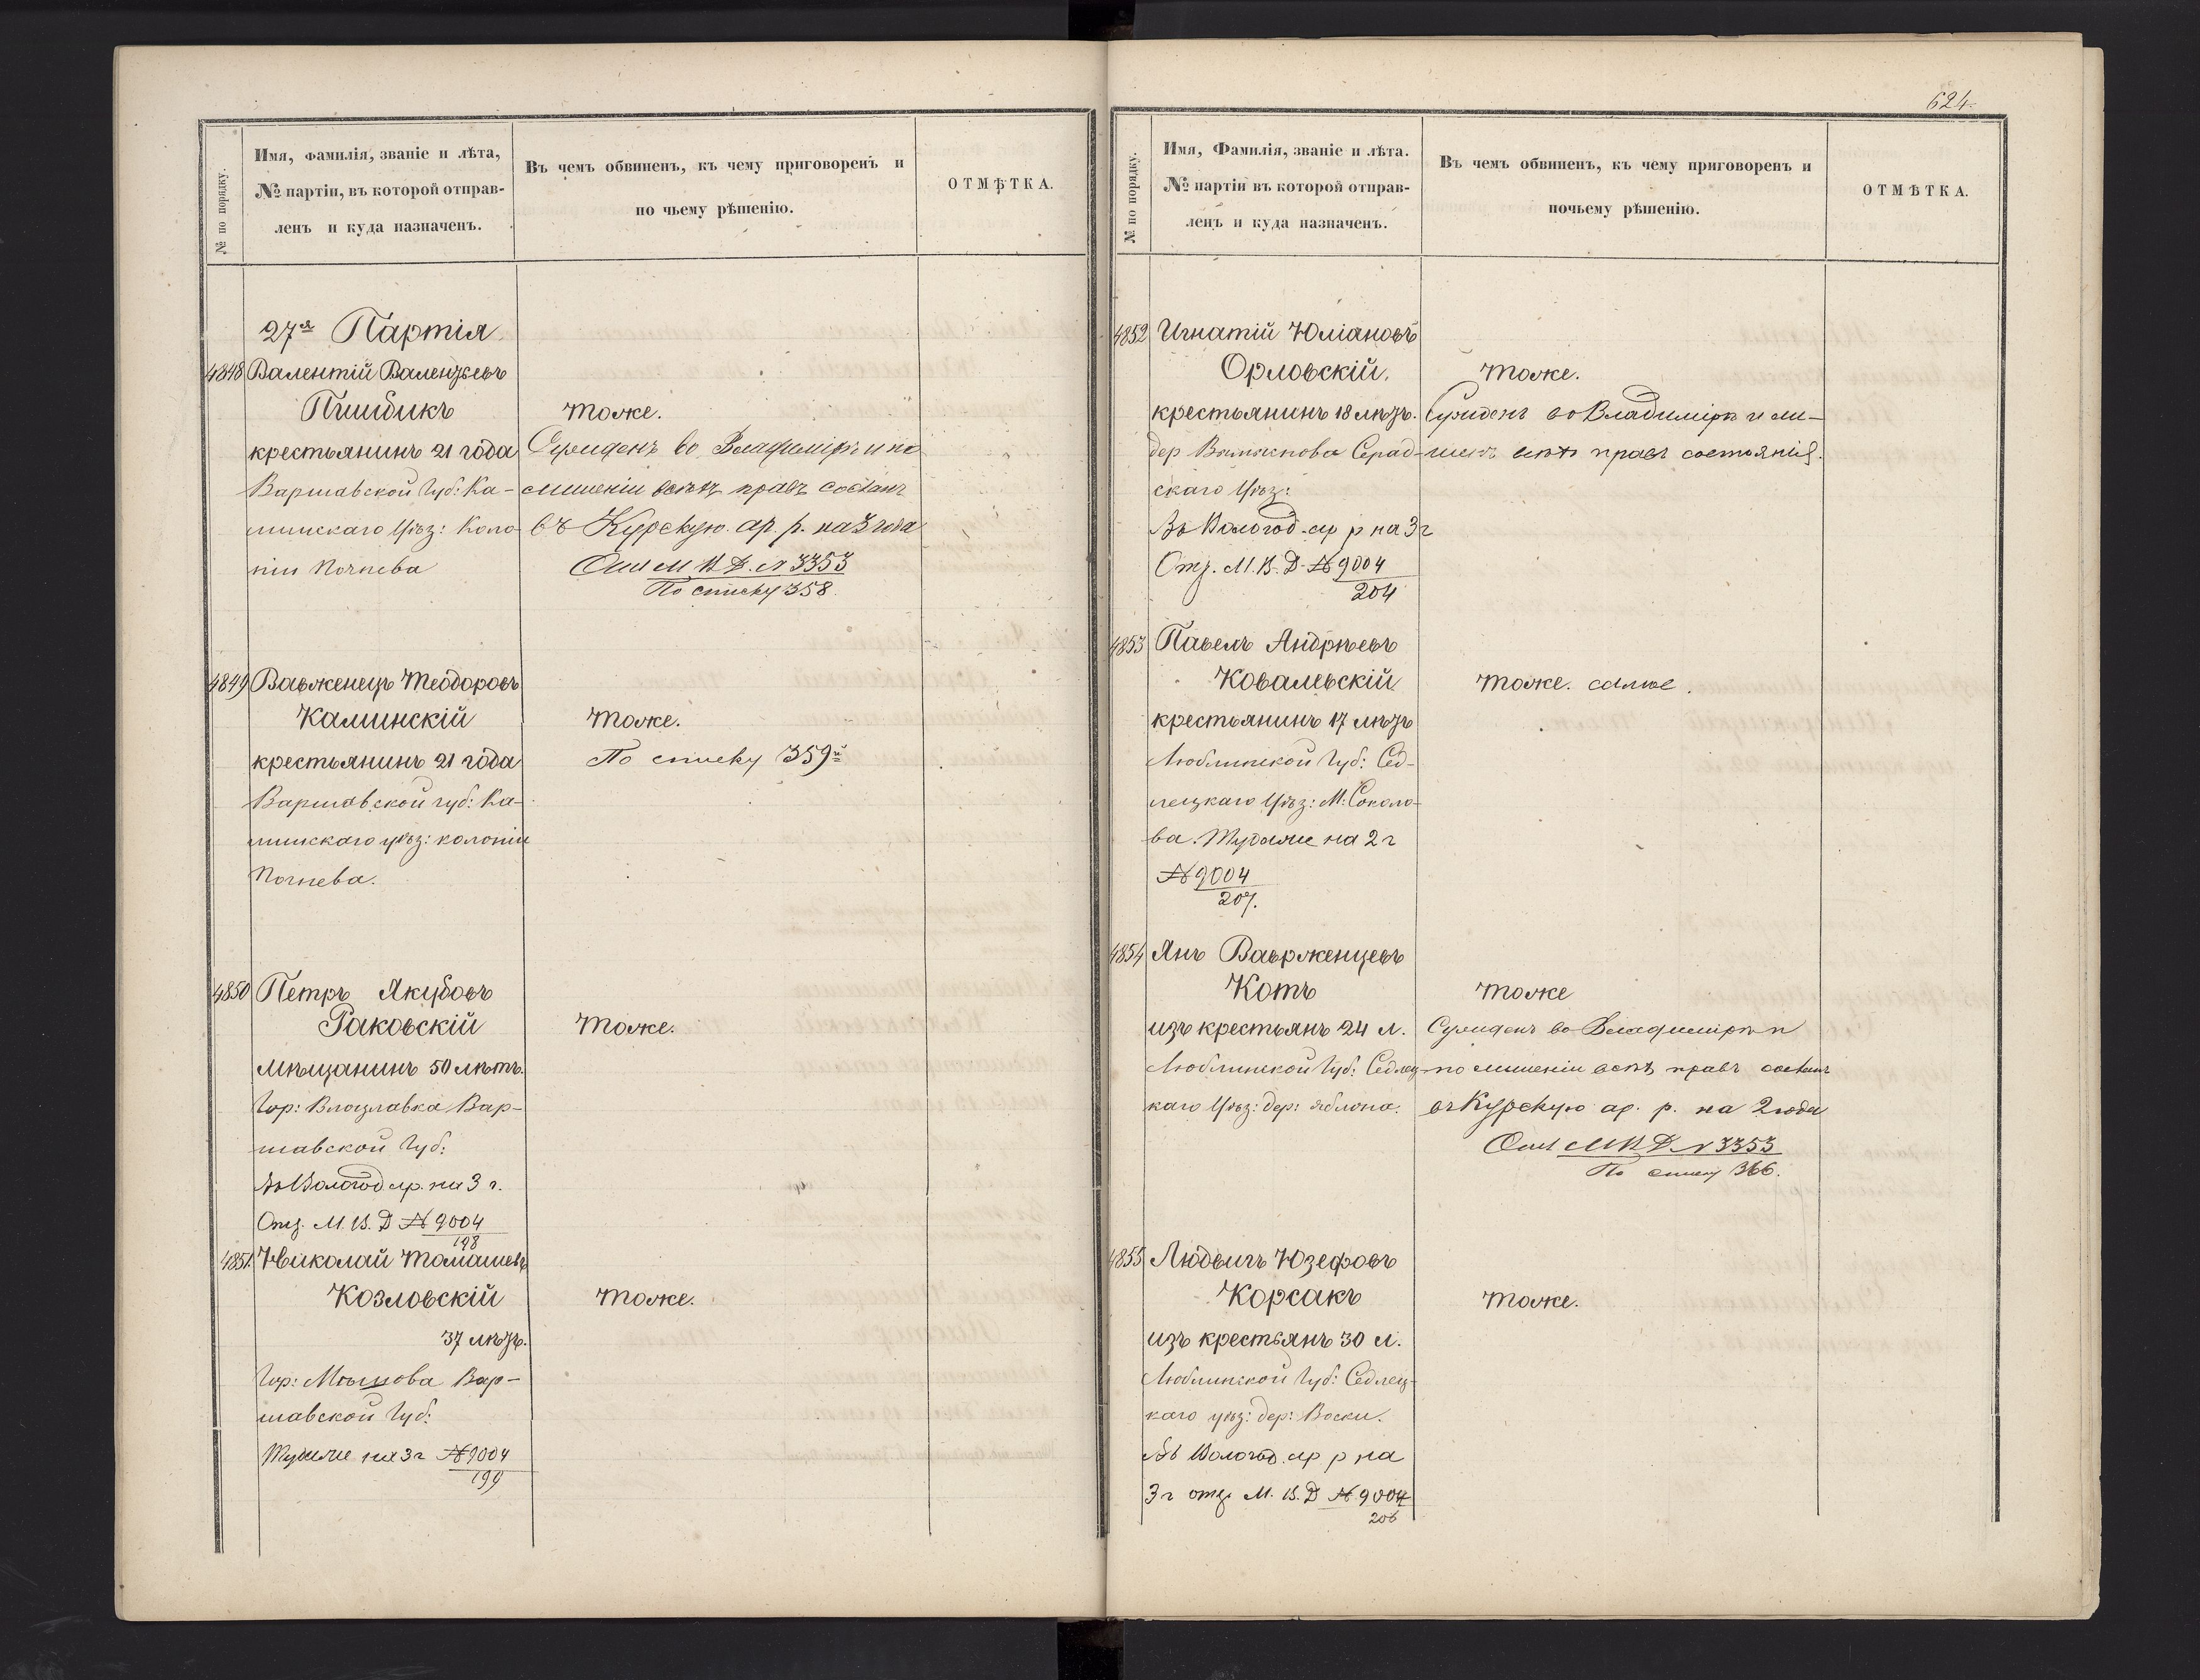 № по порядку.
Имя, Фамилія, званіе и лѣта,
№ партіи, въ которой отправ-
ленъ и куда назначенъ.
Въ чемъ обвиненъ, къ чему приговоренъ и
по чьему рѣшенію.
ОТМѢТКА.
27я Партія
4848 Валентій Валенцьевъ
Пшибикъ
крестьянинъ 21 года
Варшавской Губ: Ка-
лишскаго Уѣз: Коло-
ніи Почнева
тоже.
Сужденъ во Владимірѣ и по
лишеніи всѣхъ правъ состоян
въ Курскую ар. р. на 3 года
М В Д. № 3353
По списку 358.
4849 Вавженецъ Теодоровъ
Калинскій
крестьянинъ 21 года
Варшавской губ: Ка-
лишскаго уѣз: колоніи
Почнева.
тоже.
По списку 359й
4850 Петръ Якубовъ
Раковскій
мѣщанинъ 50 лѣтъ.
Гор: Влоцлавка Вар-
шавской Губ:
Въ Вологод ар. на 3 г.
Отз. М. В. Д № 9004
198
4851. Николай Томашевъ
Козловскій
37 лѣтъ.
Гор: Вар-
шавской Губ:
Туда же на 3 г № 9004
199
тоже.
тоже.
624.
№ по порядку.
Имя, Фамилія, званіе и лѣта.
№ партіи въ которой отправ-
ленъ и куда назначенъ.
Въ чемъ обвиненъ, къ чему приговоренъ и
почьему рѣшенію.
ОТМѢТКА.
4852 Игнатій Юліановъ
Орловскій.
крестьянинъ 18 лѣтъ.
дер Серад-
скаго Уѣз:
Въ Вологод. ар р на 3 г
Отз. М. В. Д. № 9004
204
тоже.
Сужденъ во Владимірѣ и ли-
шенъ всѣхъ правъ состоянія.
4853 Павелъ Андрѣевъ
Ковальскій
крестьянинъ 17 лѣтъ
Люблинской Губ: Сѣд-
лецкаго Уѣз: М: Соколо-
ва. Туда же на 2 г
№ 9004
207.
тоже. самое.
4854 Янъ Ваврженцевъ
Котъ
изъ крестьянъ 24 л.
Люблинской Губ: Седлец-
каго Уѣз: дер: Яблона.
тоже
Сужденъ во Владимірѣ и
по лишеніи всѣхъ правъ состоян
въ Курскую ар. р. на 2 года
М В Д № 3353
По списку 366.
4855 Людвигъ Юзефовъ
Корсакъ
изъ крестьянъ 30 л.
Люблинской Губ: Седлец-
каго уѣз: дер: Воски.
Въ Вологод. ар р на
3 г отз. М. В. Д № 9004
206
тоже.